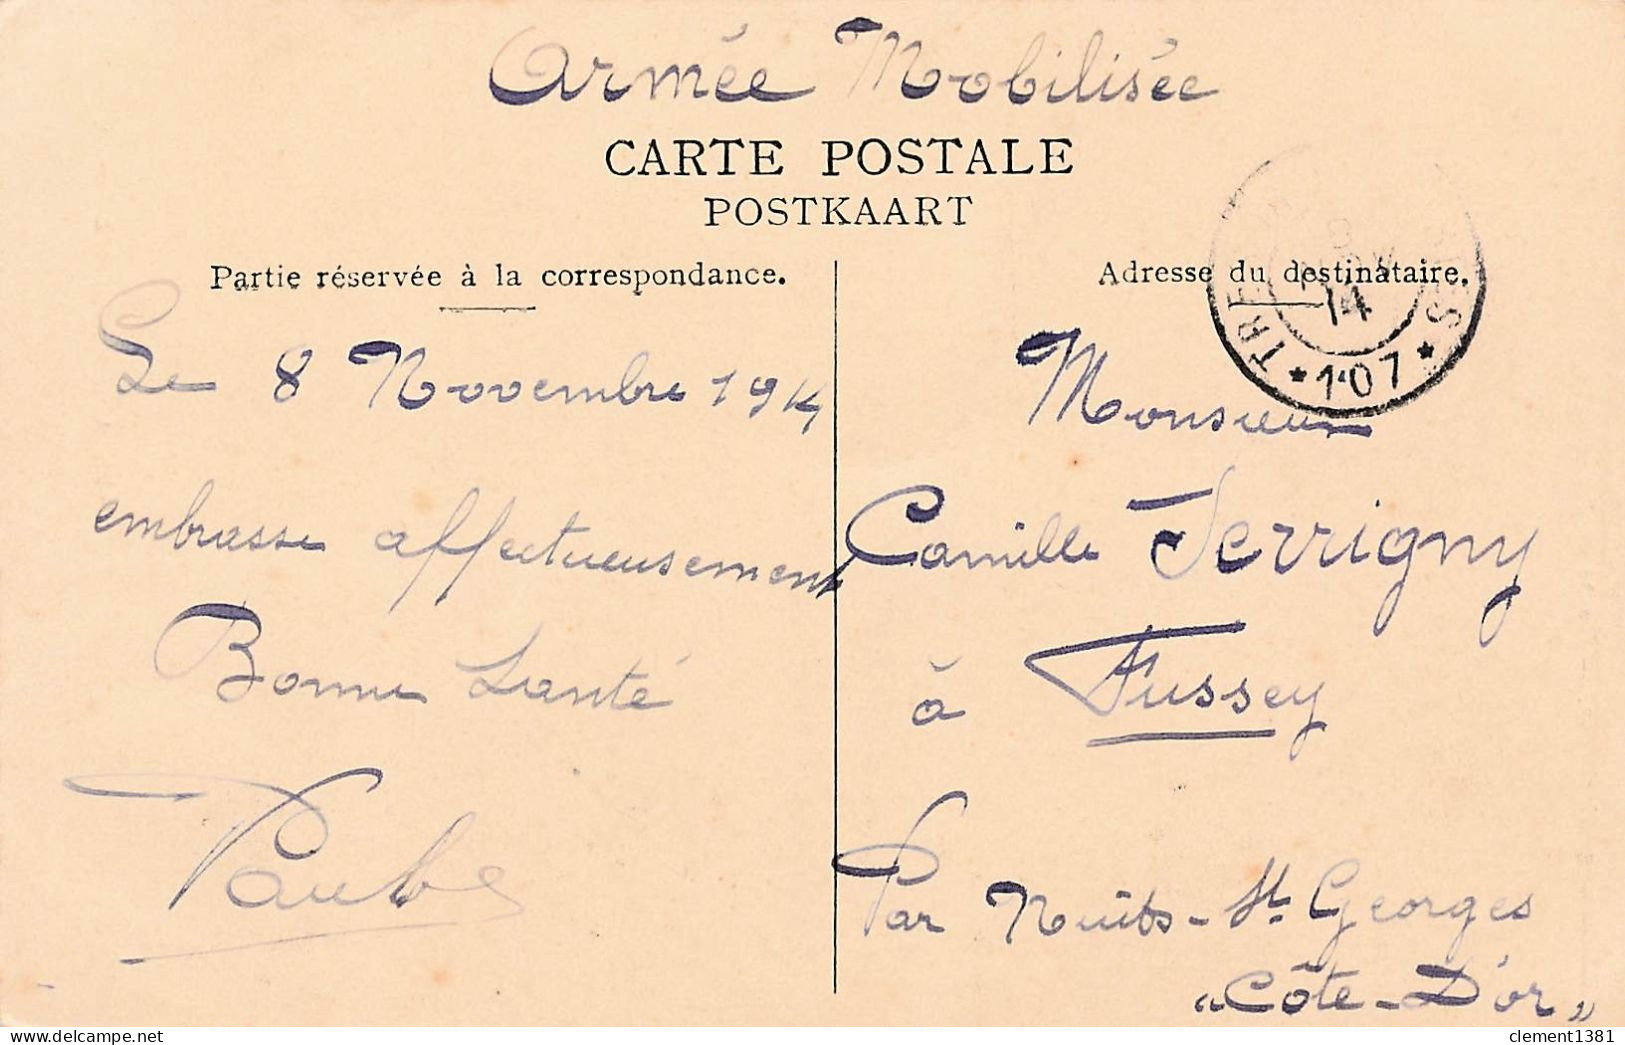 Armée Mobilisée
CARTE POSTALE
POSTKAART
Partie réservée à la correspondance.
Le 8 Novembre 1914
embrasse affectueusement
Bonne Santé
Adresse du destinataire.
14
* 107 *
Monsieur
Camille Serrigny
à Fussey
Par Nuits-St Georges
"Côte-D'or"
clement1381